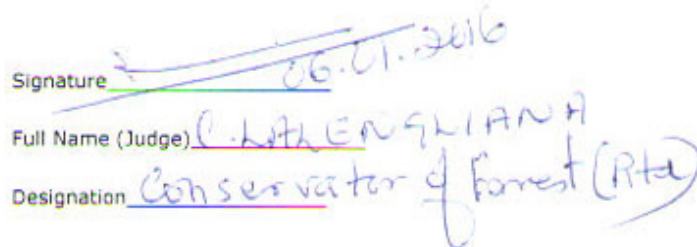 Signature 06.01.2016
Full Name (Judge) C. LALENGLIANA
Designation Conservator of Forest (Rtd)